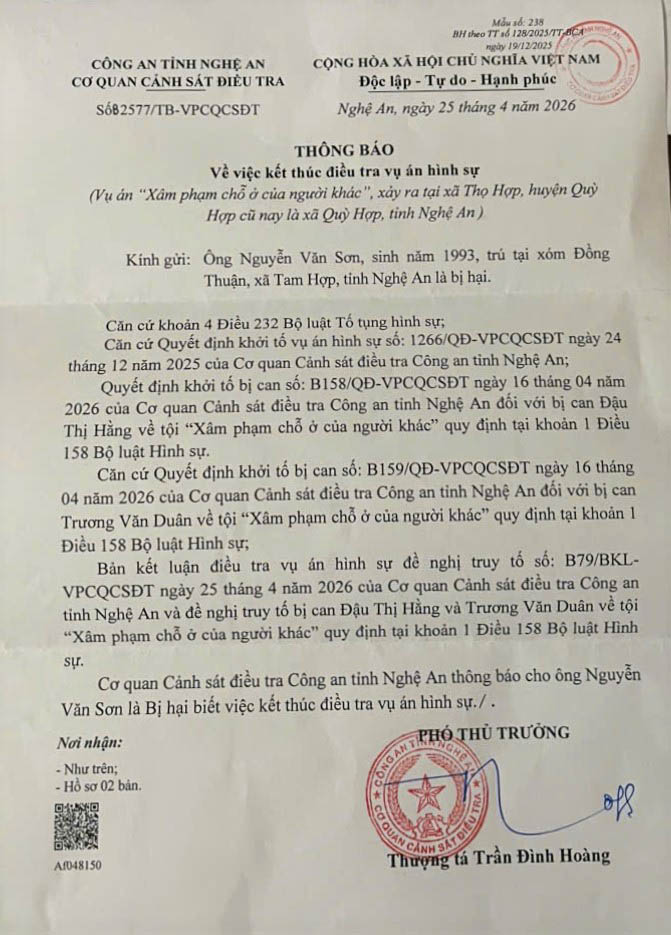 Mẫu số: 238
BH theo TT số 128/2025/TT-BCA
ngày 19/12/2025
CÔNG AN TỈNH NGHỆ AN
CƠ QUAN CẢNH SÁT ĐIỀU TRA
CỘNG HÒA XÃ HỘI CHỦ NGHĨA VIỆT NAM
Độc lập - Tự do - Hạnh phúc
Số82577/TB-VPCQCSĐT
Nghệ An, ngày 25 tháng 4 năm 2026
THÔNG BÁO
Về việc kết thúc điều tra vụ án hình sự
(Vụ án “Xâm phạm chỗ ở của người khác”, xảy ra tại xã Thọ Hợp, huyện Quỳ
Hợp cũ nay là xã Quỳ Hợp, tỉnh Nghệ An )
Kính gửi: Ông Nguyễn Văn Sơn, sinh năm 1993, trú tại xóm Đồng
Thuận, xã Tam Hợp, tỉnh Nghệ An là bị hại.
Căn cứ khoản 4 Điều 232 Bộ luật Tố tụng hình sự;
Căn cứ Quyết định khởi tố vụ án hình sự số: 1266/QĐ-VPCQCSĐT ngày 24
tháng 12 năm 2025 của Cơ quan Cảnh sát điều tra Công an tỉnh Nghệ An;
Quyết định khởi tố bị can số: B158/QĐ-VPCQCSĐT ngày 16 tháng 04 năm
2026 của Cơ quan Cảnh sát điều tra Công an tỉnh Nghệ An đối với bị can Đậu
Thị Hằng về tội “Xâm phạm chỗ ở của người khác” quy định tại khoản 1 Điều
158 Bộ luật Hình sự.
Căn cứ Quyết định khởi tố bị can số: B159/QĐ-VPCQCSĐT ngày 16 tháng
04 năm 2026 của Cơ quan Cảnh sát điều tra Công an tỉnh Nghệ An đối với bị can
Trương Văn Duân về tội “Xâm phạm chỗ ở của người khác” quy định tại khoản 1
Điều 158 Bộ luật Hình sự;
Bản kết luận điều tra vụ án hình sự đề nghị truy tố số: B79/BKL-
VPCQCSĐT ngày 25 tháng 4 năm 2026 của Cơ quan Cảnh sát điều tra Công an
tỉnh Nghệ An và đề nghị truy tố bị can Đậu Thị Hằng và Trương Văn Duân về tội
“Xâm phạm chỗ ở của người khác” quy định tại khoản 1 Điều 158 Bộ luật Hình
sự.
Cơ quan Cảnh sát điều tra Công an tỉnh Nghệ An thông báo cho ông Nguyễn
Văn Sơn là Bị hại biết việc kết thúc điều tra vụ án hình sự./ .
Nơi nhận:
- Như trên;
- Hồ sơ 02 bản.
Af048150
PHÓ THỦ TRƯỞNG
CÔNG AN TỈNH NGHỆ AN
CƠ QUAN CẢNH SÁT ĐIỀU TRA
Thượng tá Trần Đình Hoàng